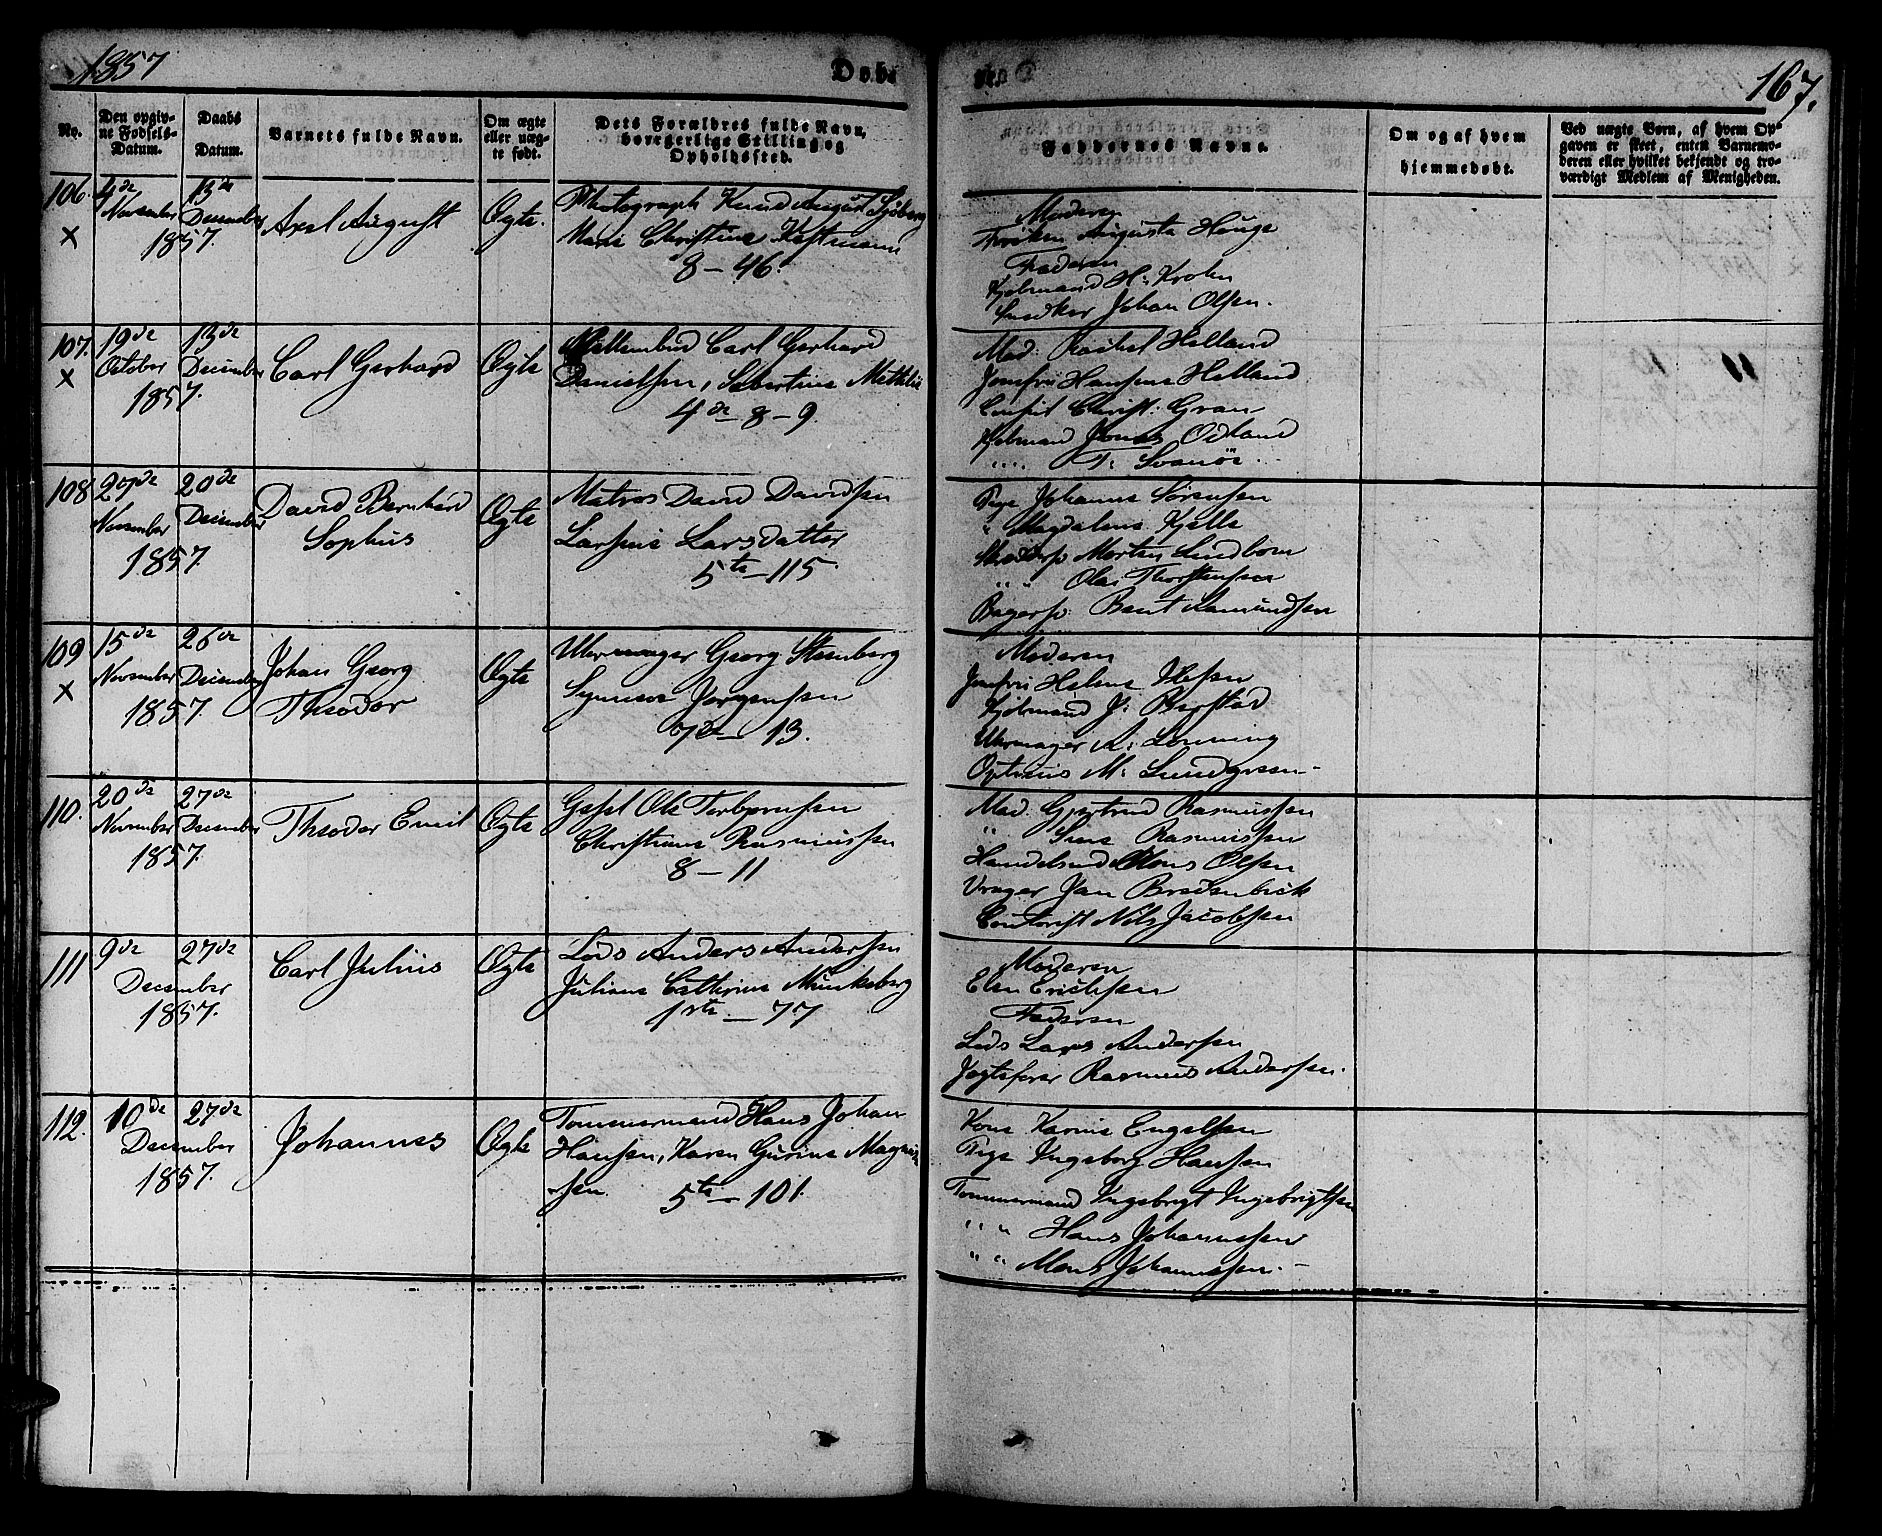 1857
Døb
167.
No.
Den opgiv-
ne Fødsels-
Datum.
Daabs
Datum.
Barnets fulde Navn.
Om ægte
eller uæg-
te født.
Dets Forældres fulde Navn,
borgerlige Stilling og
Opholdssted.
Faddernes Navne.
Om og af hvem
hjemmedøbt.
Ved uægte Børn, af hvem Op-
gaven er skeet, enten Barnemo-
deren eller hvilket bekjendt og tro-
værdigt Medlem af Menigheden.
106. 4de November 13de December 1857. Axel August Ægte.
Photograph Knud August Sjöberg
Christine
8 – 46.
Moderen
Frøken Augusta Houge
Faderen
Kjøbmand H: Krohn
Snedker Johan Olsen.
107. 19de October 13de December 1857. Carl Gerhard Ægte
Carl Gerhard
Danielsen, Sibertine Mathilde
4de – 8 – 9.
Mad: Rachel Helland
Jomfru Hansine Helland
Christ: Gran
Kjøbmand Jonas Odland
" " T: Svanöe
108 27de November 20de December 1857. David Bernhard Sophus Ægte
Matros David Davidsen
Larsine Larsdatter
5te – 115.
Pige Johanne Sörensen
" Magdalene Kjelle
Morten Lindbom
" " Ole Thorstensen
Bagersv. Bent Amundsen
109 15de November 26de December 1857. Johan Georg Theodor Ægte
Uhrmager Georg Stenberg
Synneve Jørgensen
7de – 13.
Moderen
Jomfru Helene
Kjøbmand J: Berstad
Uhrmager A: Lönning
Opticus M: Lundgreen –
110. 20de November 27de December 1857. Theodor Emil Ægte
Ole Torbjørnsen
Christiane Rasmussen
8 – 11
Mad: Gjertrud Rasmussen
" Sine Rasmussen
Handelsmd Mons Olsen
Vrager Jan Bredenbech
Nils Jacobsen
111 9de 27de December 1857. Carl Julius Ægte
Lods Anders Andersen
Juliane Cathrine Munkeberg
1ste – 77
Moderen
Elen Erichsen
Faderen
Lods Lars Andersen
Jagtefører Rasmus Andersen.
112. 10de 27de December 1857. Johannes Ægte
Tømmermand Hans Johan
Hansen, Karen Gurine Magnus
sen. 5te – 101.
Kone Karine Engelsen
Pige Ingeborg Hansen
Tømmermand Ingebrigt Ingebrigtsen
" " Hans Johannessen
" " Mons Johannessen. –